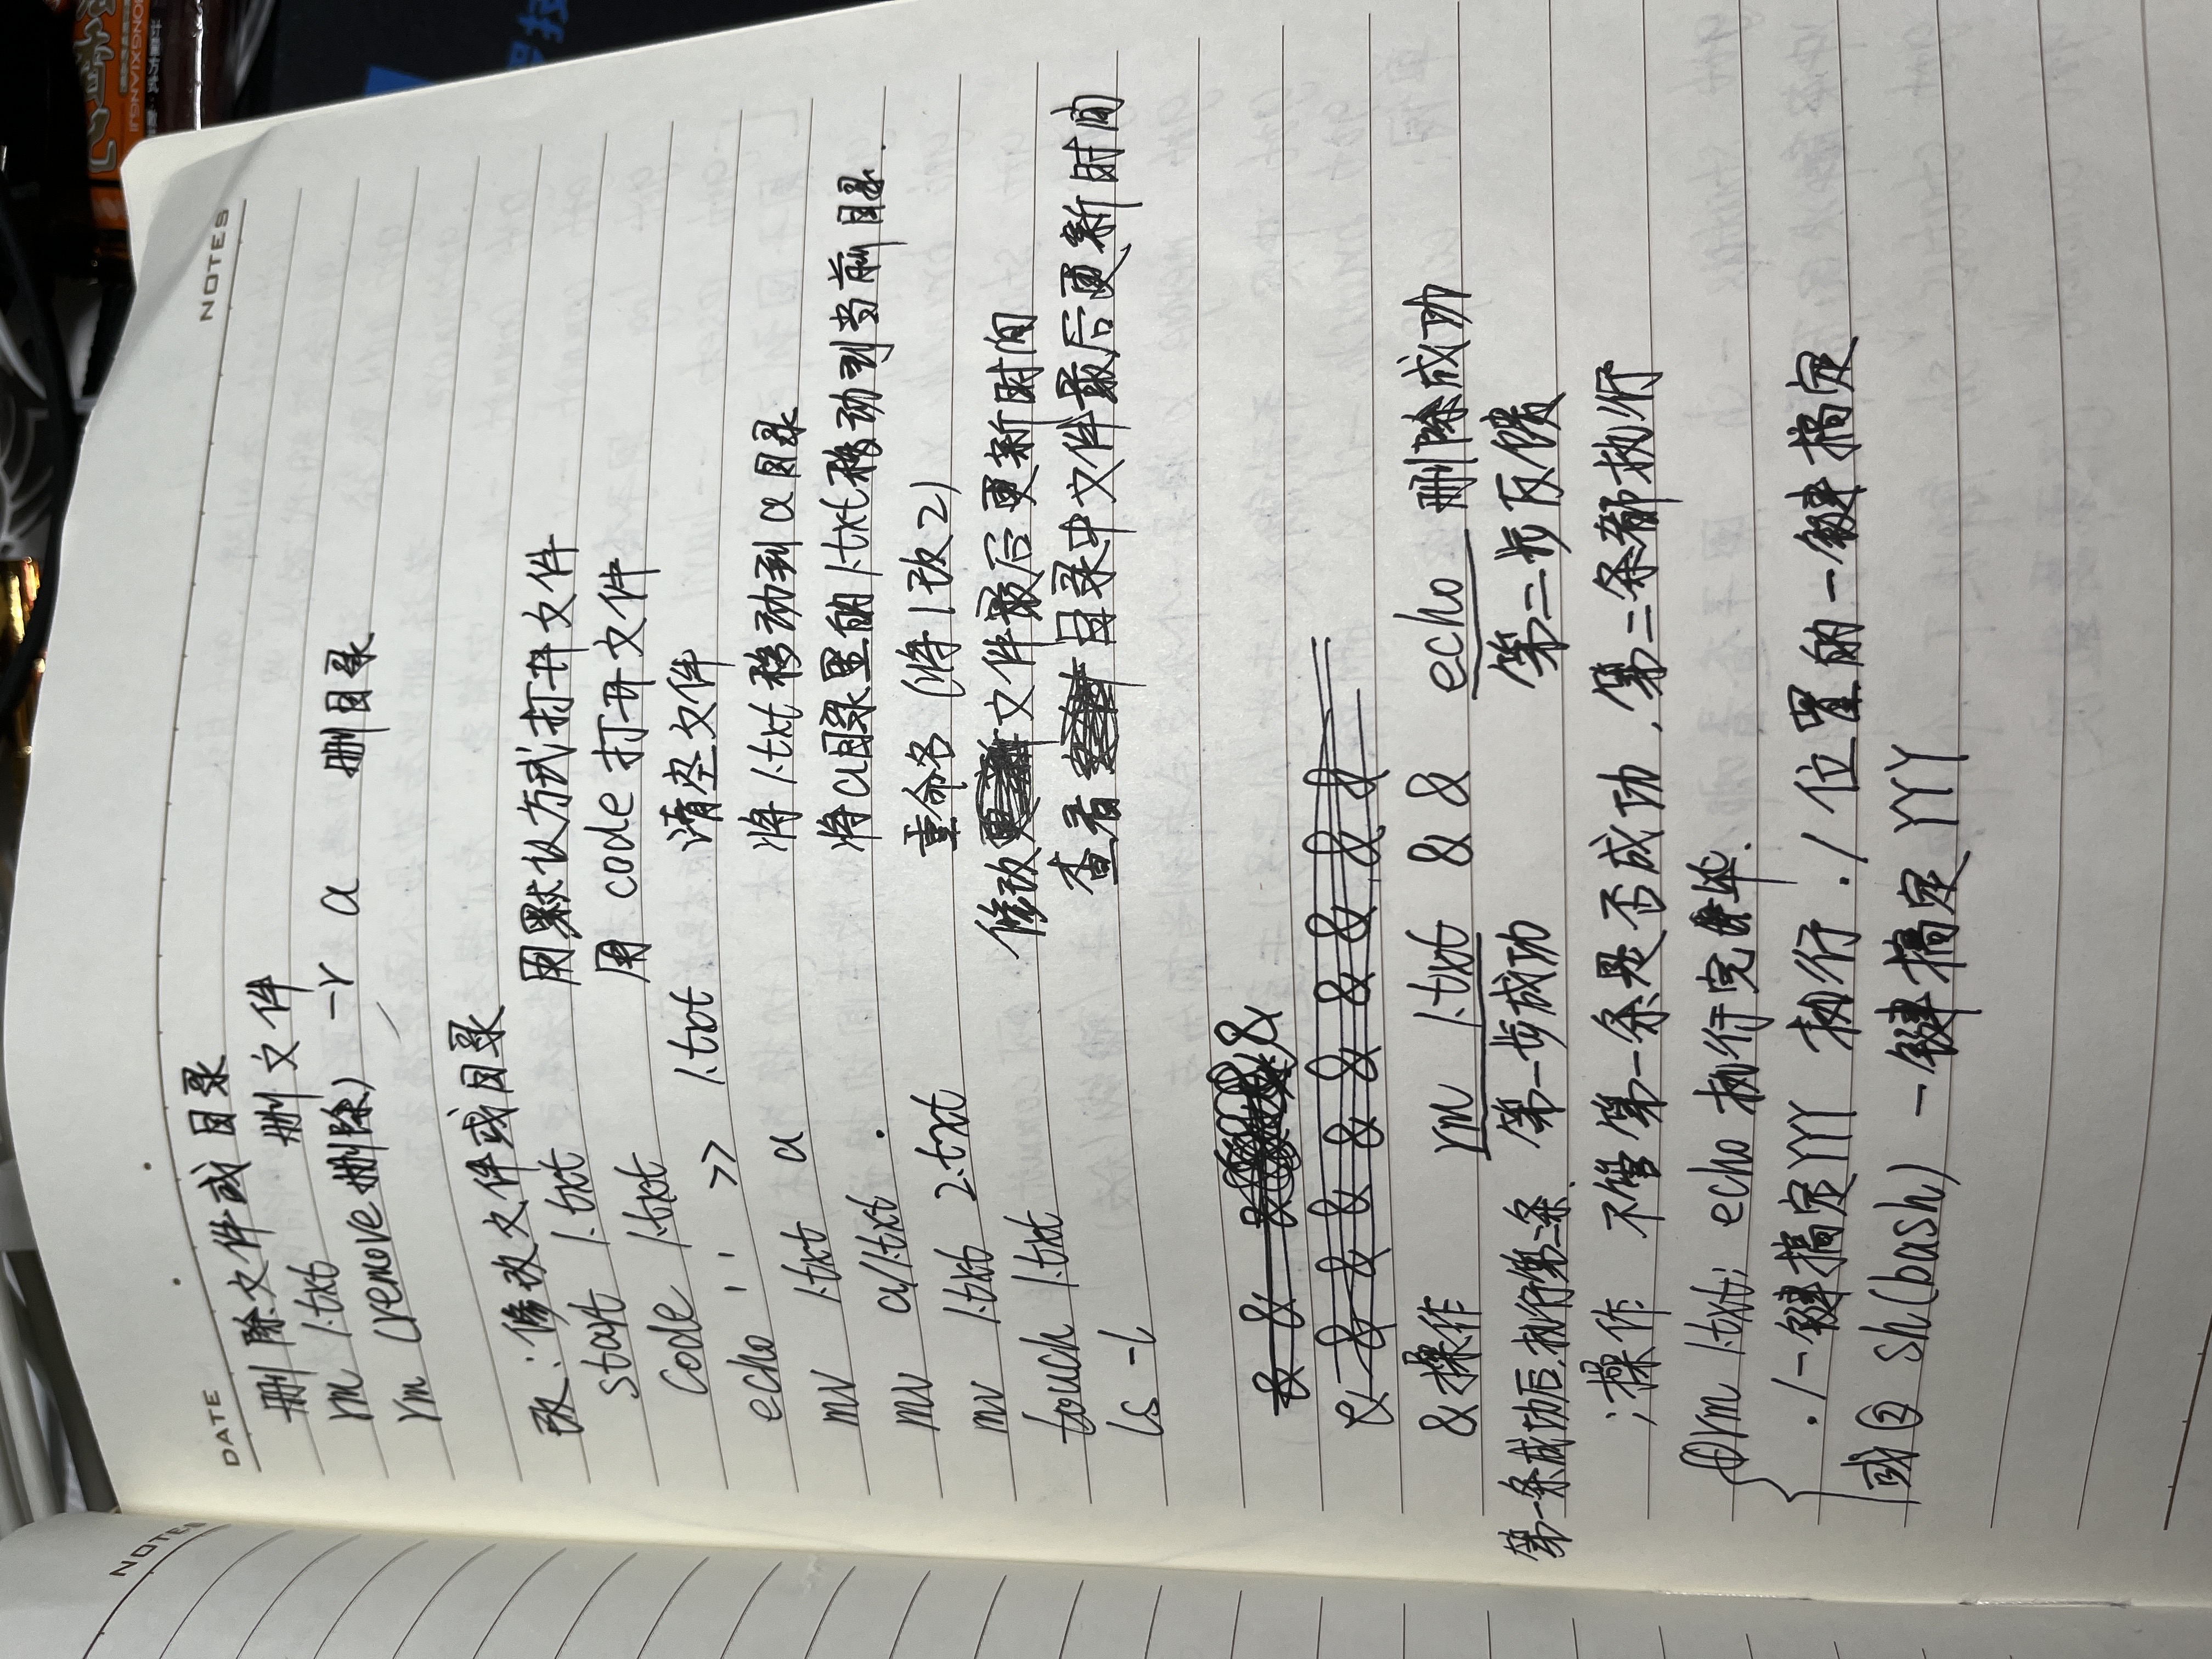 NOTES
DATE
NOTES
删除文件或目录
rm 1.txt 删文件
rm (remove删除) -r a 删目录
改:修改文件或目录
start 1.txt 用默认方式打开文件
code 1.txt 用 code 打开文件
echo '' >> 1.txt 清空文件
mv 1.txt a 将1.txt移动到a目录
mv a/1.txt . 将a目录里的1.txt移动到当前目录.
mv 1.txt 2.txt 重命名(将1改2)
touch 1.txt 修改文件最后更新时间
ls -l 查看目录中文件最后更新时间
& & & &
& & & & & & & & &
&操作 rm 1.txt && echo 删除成功
第一条成功后,执行第二条. 第一步成功 第二步反馈
;操作 不管第一条是否成功,第二条都执行
①rm 1.txt; echo 执行完毕.
./一键搞定YYY 执行 ./ 位置的一键搞定
或② sh(bash) 一键搞定YYY